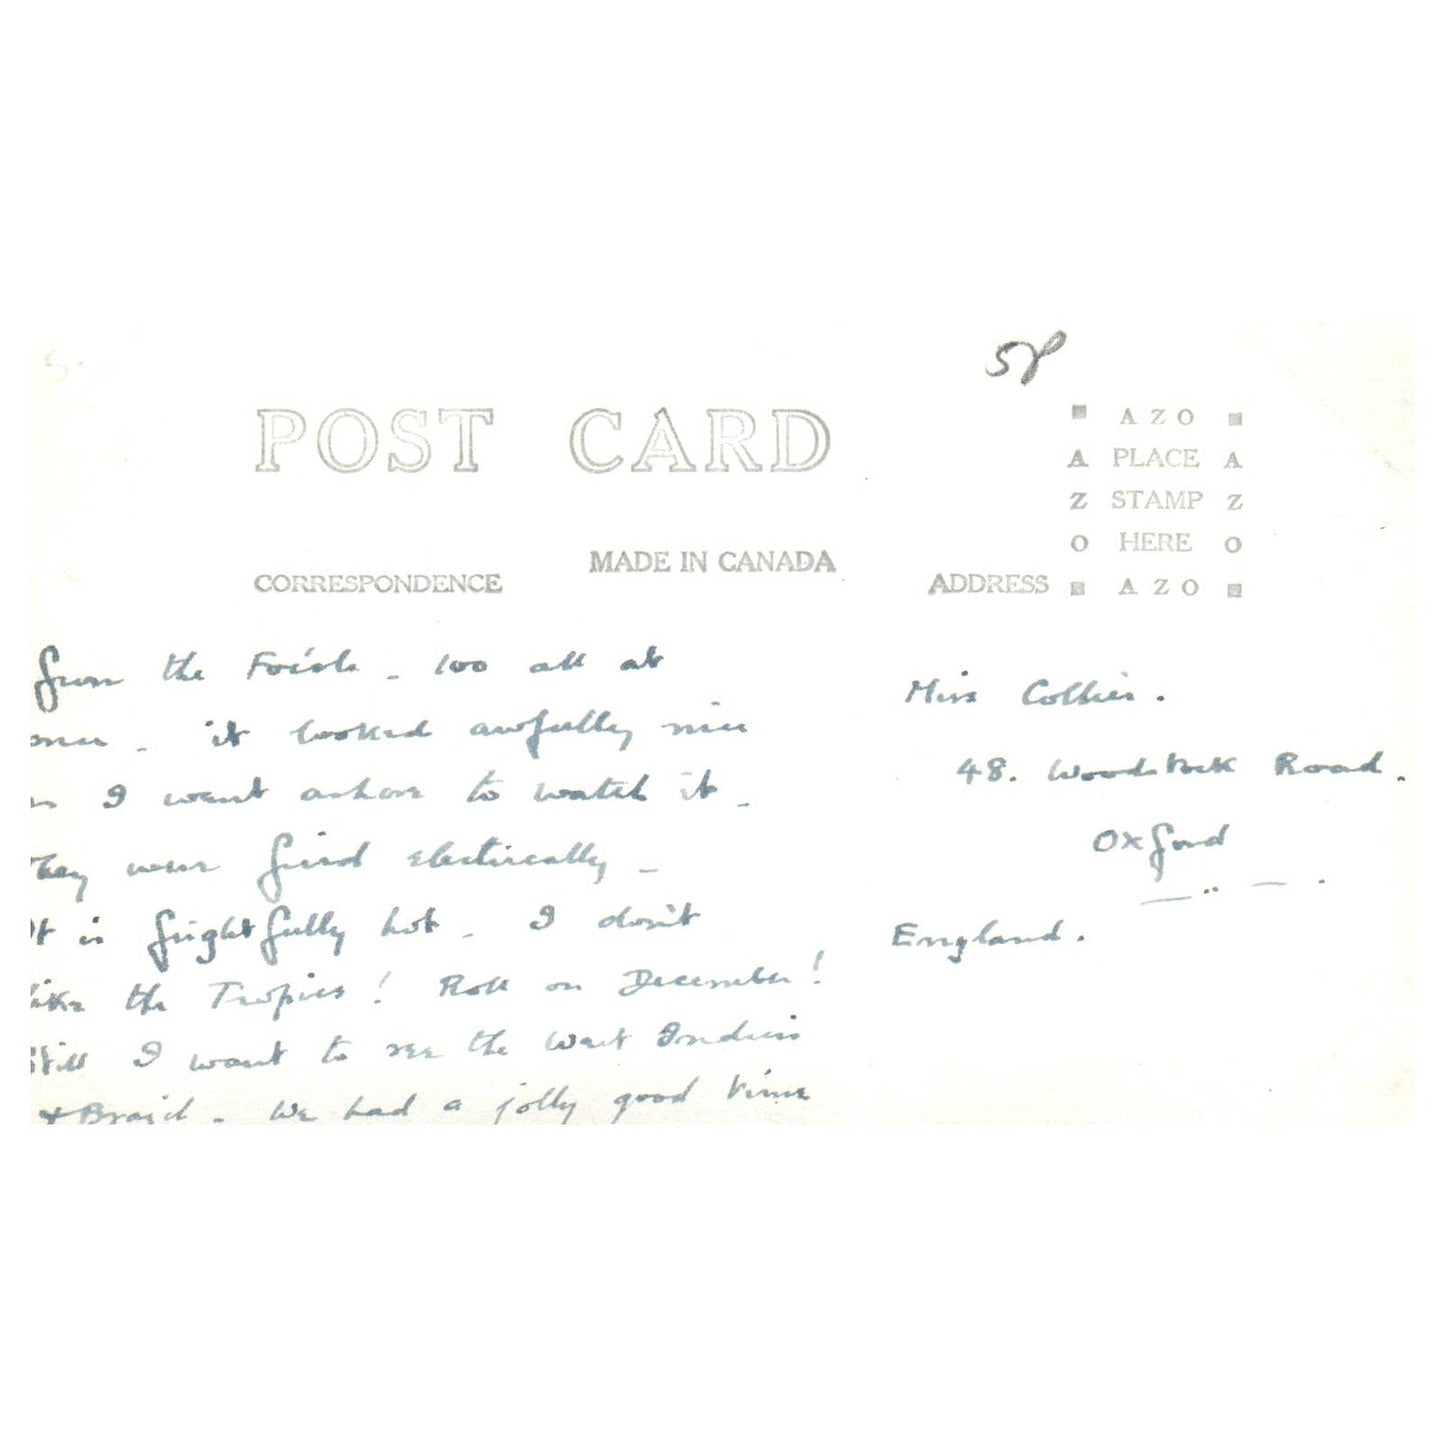 58
POST CARD
AZO
A PLACE A
Z STAMP Z
O HERE O
AZO
MADE IN CANADA
CORRESPONDENCE
ADDRESS
from the - 100 all at
once - it looked awfully nice
as I went ashore to watch it -
They were fired electrically -
It is frightfully hot - I don't
like the Tropics! Roll on December!
Still I want to see the West Indies
& Brazil - We had a jolly good time
Miss Collier.
48. Woodstock Road.
Oxford
England.